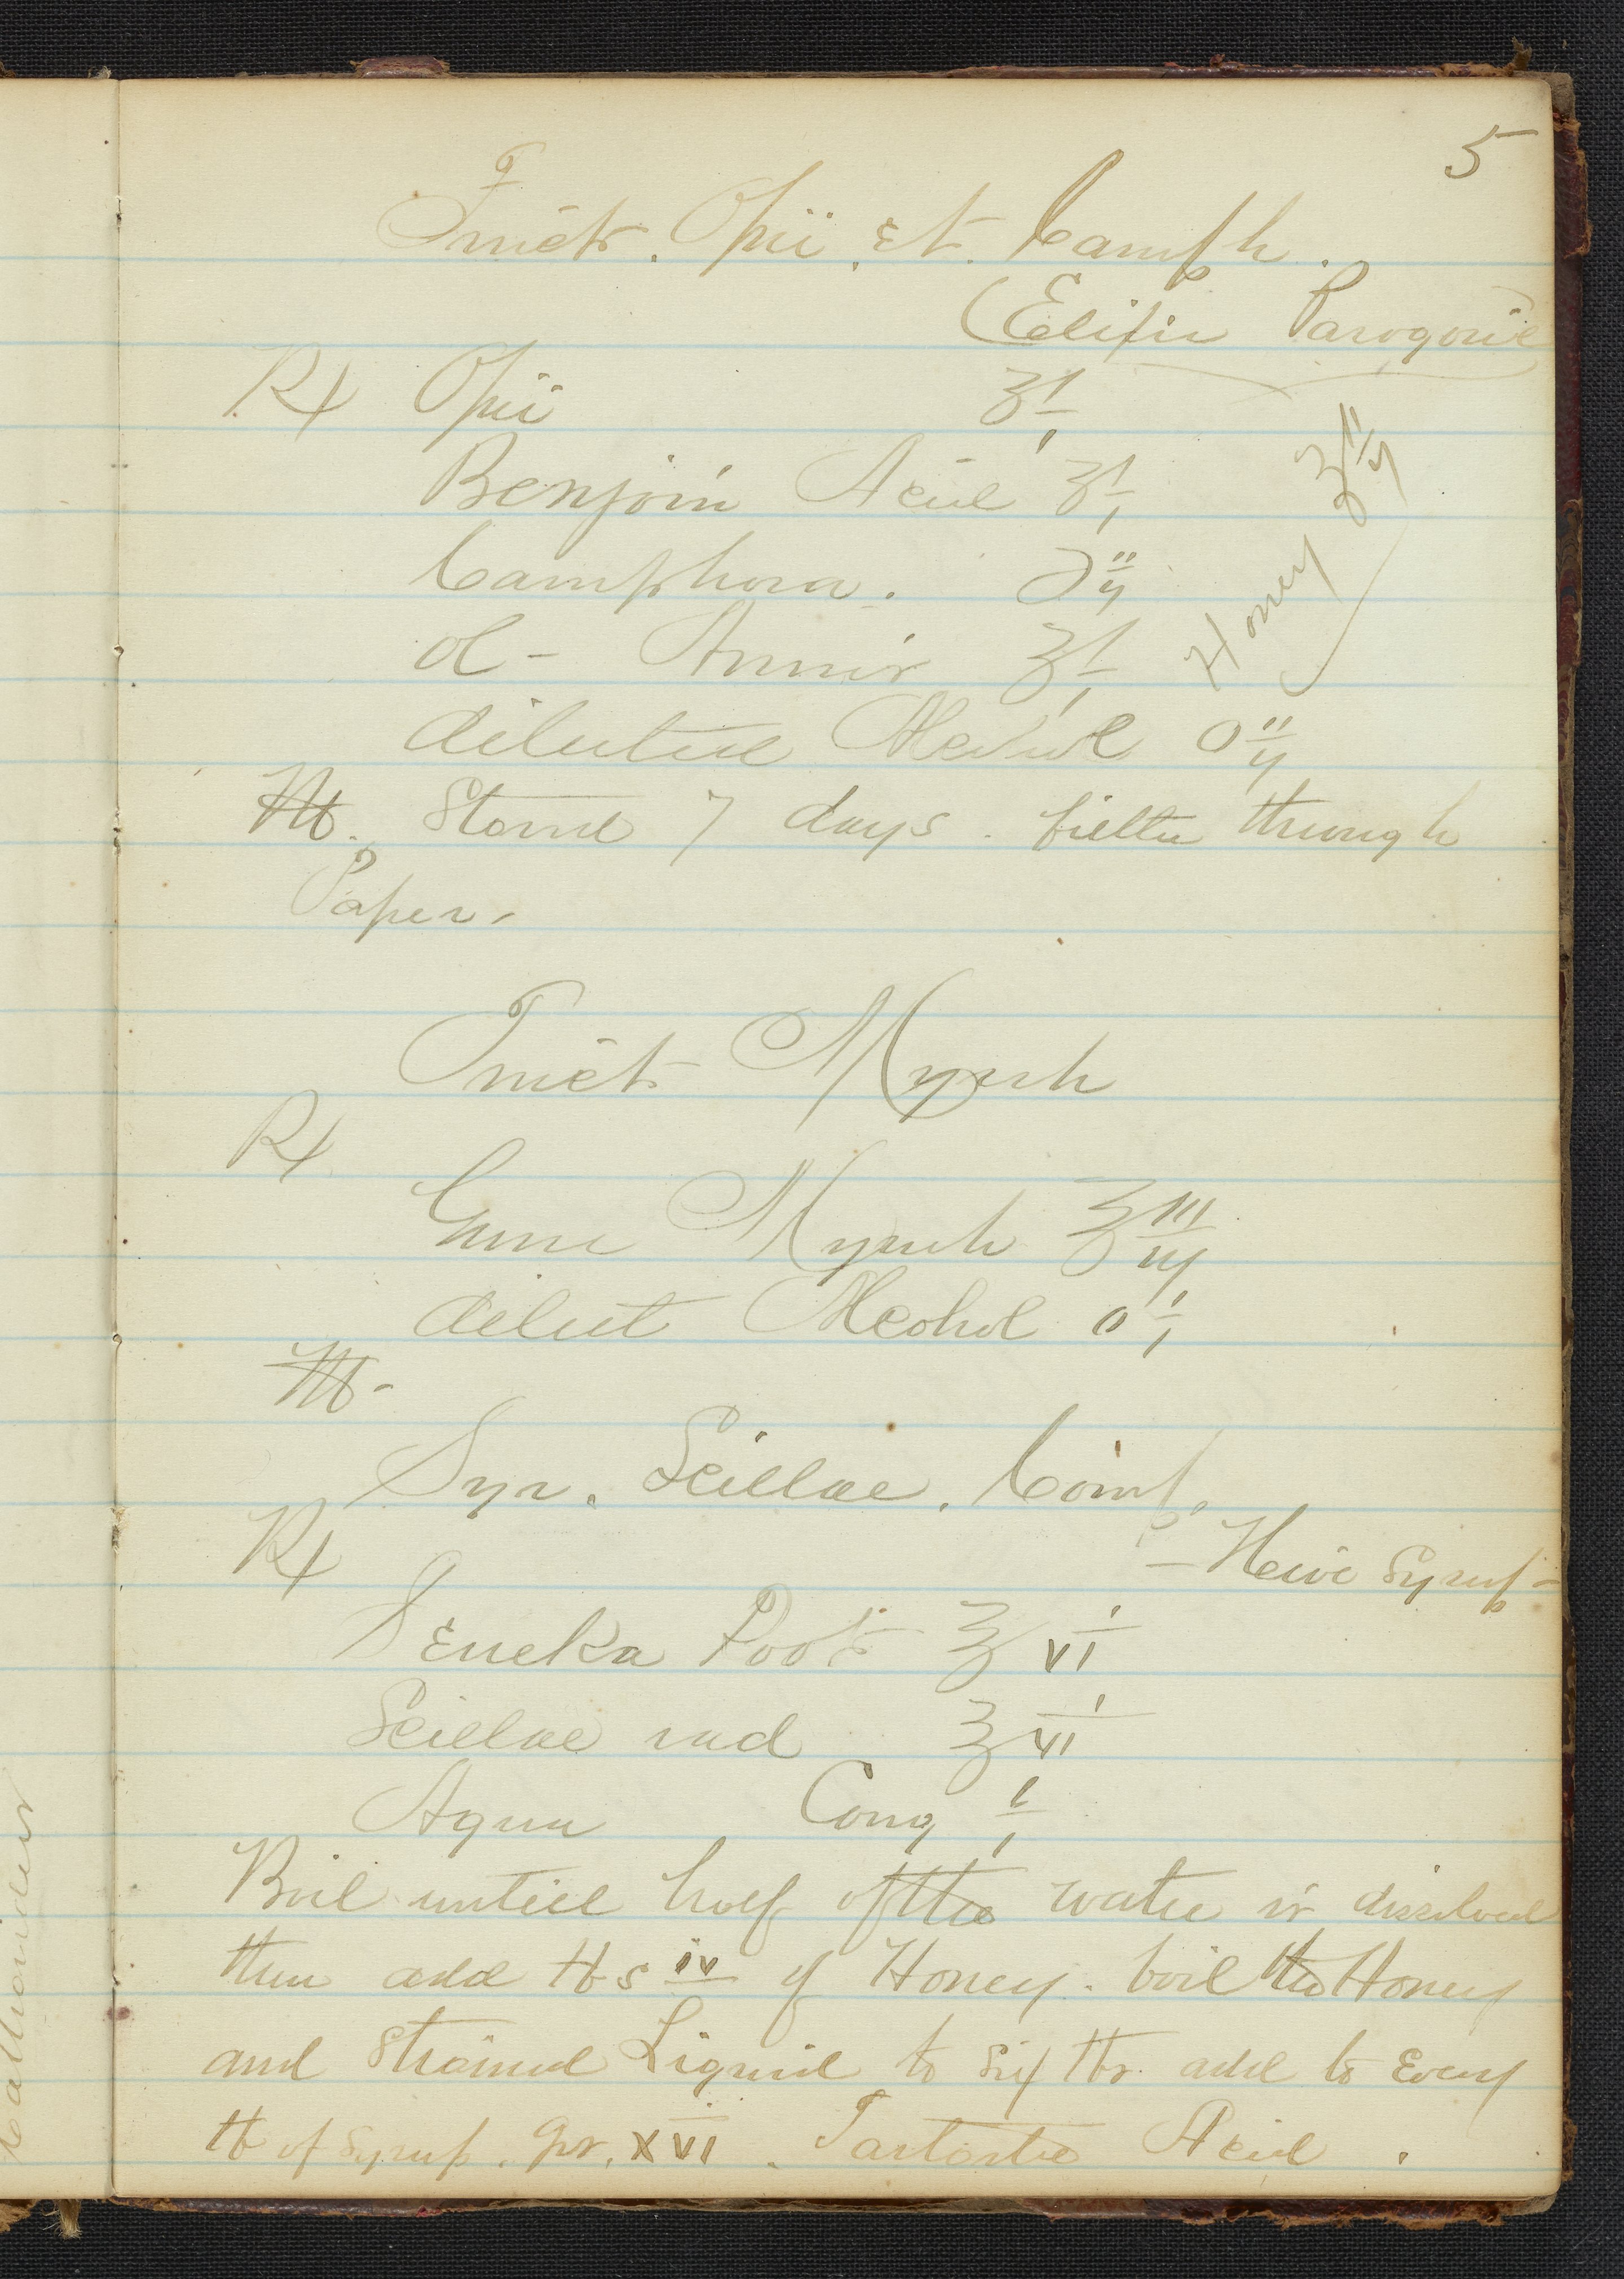 5
Tinct. Opii. et. Camph.
(Elixir Paregoric
Rx Opii ʒi
Benzoin Acid ʒi
Camphora. ℈ij
Honey ℥ij
ol - Annis ʒi
diluted Alcohol Oij
M. Stand 7 days. filter through
Paper.
Tinct Myrrh
Rx
Gum Myrrh ℥iij
dilut Alcohol Oi
M -
Syr. Scillae. Comp.
- Hive Syrup -
Rx
Seneka Root ℥ vi
Scillae rad ℥ vi
Aqua Cong i
Boil untill half of the water is dissolved
then add ℔s iv of Honey. boil the Honey
and Strained Liquid to Six ℔s. add to Every
℔ of Syrup. grs. XVI. Tartartic Acid.